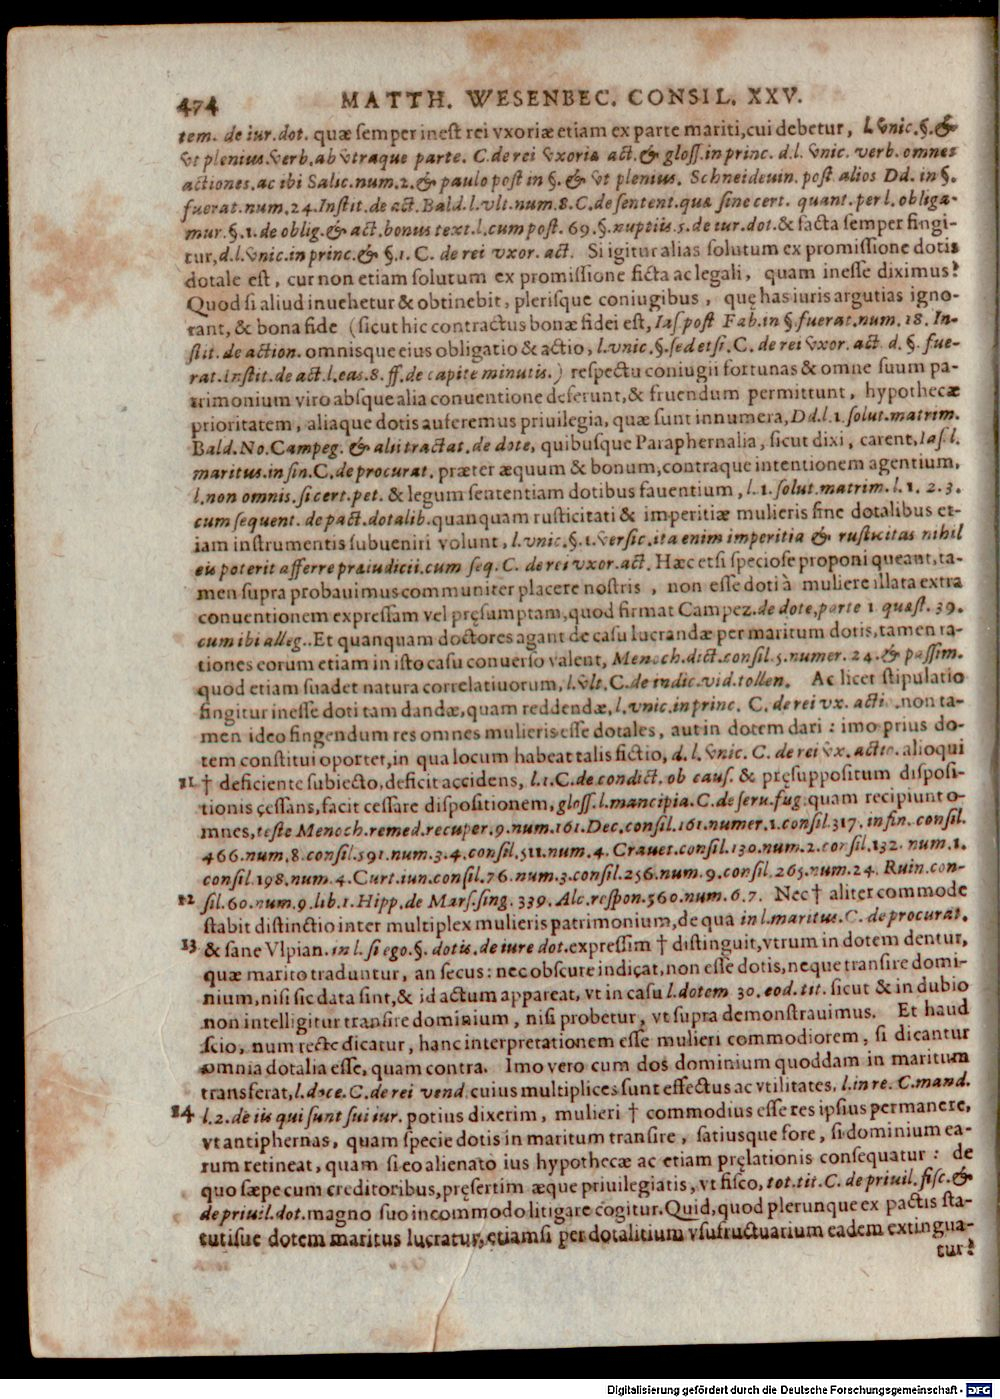 474 MATTH. WESENBEC. CONSIL. XXV.
tem. de iur. dot. quæ semper inest rei vxoriæ etiam ex parte mariti, cui debetur, l. vnic. §. &
vt plenius. verb. ab vtraque parte. C. de rei vxoria act. & gloss. in princ. d. l. vnic. verb. omnes
actiones. ac ibi Salic. num. 2. & paulo post in §. & vt plenius. Schneideuin. post alios Dd. in §.
fuerat. num. 24. Instit. de act. Bald. l. vlt. num. 8. C. de sentent. quæ sine cert. quant. per l. obliga-
mur. §. 1. de oblig. & act. bonus text. l. cum post. 69. §. nuptiis. 5. de iur. dot. & facta semper fingi-
tur, d. l. vnic. in princ. & §. 1. C. de rei vxor. act. Si igitur alias solutum ex promissione dotis
dotale est, cur non etiam solutum ex promissione ficta ac legali, quam inesse diximus?
Quod si aliud inuehetur & obtinebit, plerisque coniugibus, quę has iuris argutias igno-
rant, & bona fide (sicut hic contractus bonæ fidei est, Ias. post Fab. in §. fuerat. num. 18. In-
stit. de action. omnisque eius obligatio & actio, l. vnic. §. sed etsi. C. de rei vxor. act. d. §. fue-
rat. Instit. de act. l. eas. 8. ff. de capite minutis.) respectu coniugii fortunas & omne suum pa-
trimonium viro absque alia conuentione deferunt, & fruendum permittunt, hypothecæ
prioritatem, aliaque dotis auferemus priuilegia, quæ sunt innumera, Dd. l. 1. solut. matrim.
Bald. No. Campeg. & alii tractat. de dote, quibusque Paraphernalia, sicut dixi, carent, Ias. l.
maritus. in fin. C. de procurat. præter æquum & bonum, contraque intentionem agentium,
l. non omnis. si cert. pet. & legum sententiam dotibus fauentium, l. 1. solut. matrim. l. 1. 2. 3.
cum sequent. de pact. dotalib. quanquam rusticitati & imperitiæ mulieris sine dotalibus et-
iam instrumentis subueniri volunt, l. vnic. §. 1. versic. ita enim imperitia & rusticitas nihil
eis poterit afferre præiudicii. cum seq. C. de rei vxor. act. Hæc etsi speciose proponi queant, ta-
men supra probauimus communiter placere nostris, non esse doti à muliere illata extra
conuentionem expressam vel pręsumptam, quod firmat Campez. de dote, parte 1 quæst. 39.
cum ibi alleg.. Et quanquam doctores agant de casu lucrandæ per maritum dotis, tamen ra-
tiones eorum etiam in isto casu conuerso valent, Menoch. dict. consil. 5. numer. 24. & passim.
quod etiam suadet natura correlatiuorum, l. vlt. C. de indic. vid. tollen. Ac licet stipulatio
fingitur inesse doti tam dandæ, quam reddendæ, l. vnic. in princ. C. de rei vx. actio. non ta-
men ideo fingendum res omnes mulieris esse dotales, aut in dotem dari: imo prius do-
tem constitui oportet, in qua locum habeat talis fictio, d. l. vnic. C. de rei vx. actio. alioqui
21 † deficiente subiecto, deficit accidens, l. 1. C. de condict. ob caus. & pręsuppositum disposi-
tionis çessans, facit cessare dispositionem, gloss. l. mancipia. C. de seru. fug. quam recipiunt o-
mnes, teste Menoch. remed. recuper. 9. num. 161. Dec. consil. 161. numer. 1. consil. 317. in fin. consil.
466. num. 8. consil. 591. num. 3. 4. consil. 511. num. 4. Crauet. consil. 130. num. 2. consil. 132. num. 1.
consil. 198. num. 4. Curt. iun. consil. 76. num. 3. consil. 256. num. 9. consil. 265. num. 24. Ruin. con-
22 sil. 60. num. 9. lib. 1. Hipp. de Mars. sing. 339. Alc. respon. 560. num. 6. 7. Nec † aliter commode
stabit distinctio inter multiplex mulieris patrimonium, de qua in l. maritus. C. de procurat.
23 & sane Vlpian. in l. si ego. §. dotis. de iure dot. expressim † distinguit, vtrum in dotem dentur,
quæ marito traduntur, an secus: nec obscure indiçat, non esse dotis, neque transire domi-
nium, nisi sic data sint, & id actum appareat, vt in casu l. dotem 30. eod. tit. sicut & in dubio
non intelligitur transire dominium, nisi probetur, vt supra demonstrauimus. Et haud
scio, num recte dicatur, hanc interpretationem esse mulieri commodiorem, si dicantur
omnia dotalia esse, quam contra. Imo vero cum dos dominium quoddam in maritum
transferat, l. doce. C. de rei vend. cuius multiplices sunt effectus ac vtilitates, l. in re. C. mand.
24 l. 2. de iis qui sunt sui iur. potius dixerim, mulieri † commodius esse res ipsius permanere,
vt antiphernas, quam specie dotis in maritum transire, satiusque fore, si dominium ea-
rum retineat, quam si eo alienato ius hypothecæ ac etiam pręlationis consequatur: de
quo sæpe cum creditoribus, pręsertim æque priuilegiatis, vt fisco, tot. tit. C. de priuil. fisc. &
de priuil. dot. magno suo incommodo litigare cogitur. Quid, quod plerunque ex pactis sta-
tutisue dotem maritus lucratur, etiamsi per dotalitium vsufructuarium eadem extingua-
tur?
Digitalisierung gefördert durch die Deutsche Forschungsgemeinschaft - DFG